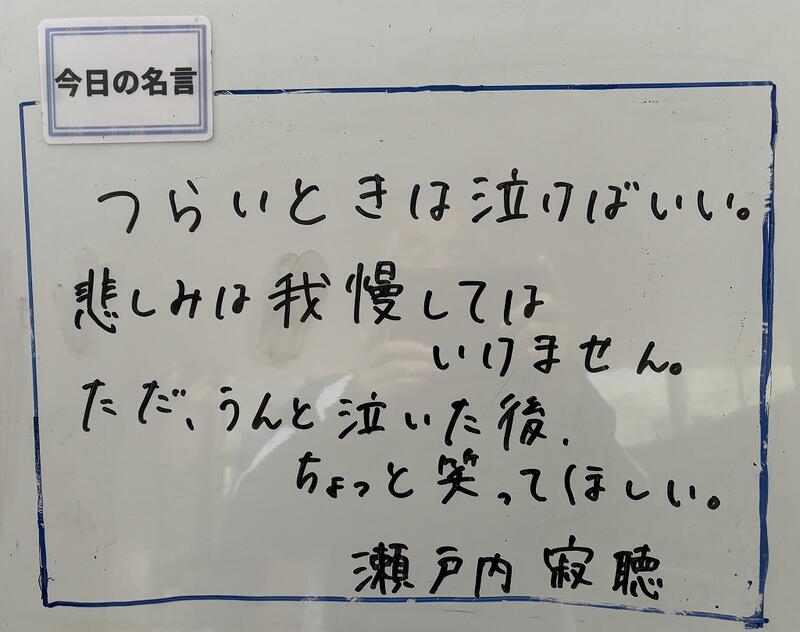 今日の名言
つらいときは泣けばいい。
悲しみは我慢しては
いけません。
ただ、うんと泣いた後、
ちょっと笑ってほしい。
瀬戸内 寂聴